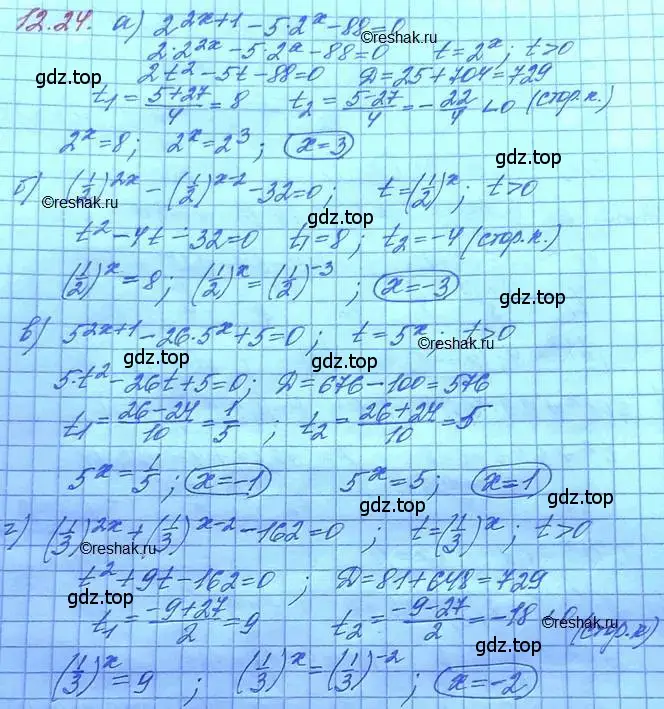 12.24. а) 2^(2x+1) - 5·2^x - 88 = 0
2·2^(2x) - 5·2^x - 88 = 0 t = 2^x; t > 0
©reshak.ru
2t² - 5t - 88 = 0 D = 25 + 704 = 729
gdz.top
t₁ = (5+27)/4 = 8 t₂ = (5-27)/4 = -22/4 < 0 (стор.к.)
gdz.top gdz.top
2^x = 8; 2^x = 2³; x = 3
gdz.top
б) (1/2)^(2x) - (1/2)^(x-2) - 32 = 0; t = (1/2)^x; t > 0
©reshak.ru
gdz.top
t² - 4t - 32 = 0 t₁ = 8; t₂ = -4 (стор.к.)
(1/2)^x = 8; (1/2)^x = (1/2)^(-3); x = -3
gdz.top
в) 5^(2x+1) - 26·5^x + 5 = 0; t = 5^x; t > 0
©reshak.ru
gdz.top
5·t² - 26t + 5 = 0; D = 676 - 100 = 576
gdz.top
t₁ = (26-24)/10 = 1/5; t₂ = (26+24)/10 = 5
5^x = 1/5; x = -1 5^x = 5; x = 1
gdz.top
г) (1/3)^(2x) + (1/3)^(x-2) - 162 = 0; t = (1/3)^x; t > 0
©reshak.ru
gdz.top
t² + 9t - 162 = 0; D = 81 + 648 = 729
gdz.top
t₁ = (-9+27)/2 = 9 t₂ = (-9-27)/2 = -18 < 0 (стор.к)
©reshak.ru
gdz.top
(1/3)^x = 9; (1/3)^x = (1/3)^(-2); x = -2
gdz.top